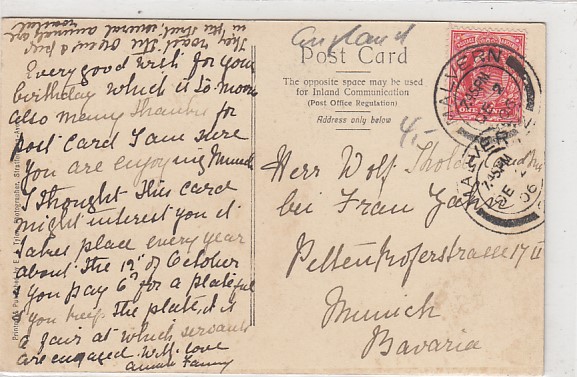 They roast the oxen & pigs
in the street, several animals are
roasted
Every good wish for your
birthday which is to-morrow
also many thanks for
post card I am sure
you are enjoying Munich
I thought this card
might interest you it
takes place every year
about the 12th of October
& you pay 6d for a plateful
& you keep the plate, it is
a fair at which servants
are engaged. With love
Fanny
England
Post Card
The opposite space may be used
for Inland Communication
(Post Office Regulation)
Address only below
MALVERN
7.45PM
SE 2
06
MALVERN
7.45PM
SE 2
06
Herr Wolf
bei Frau
Pettenkoferstrasse 17 II
Munich
Bavaria